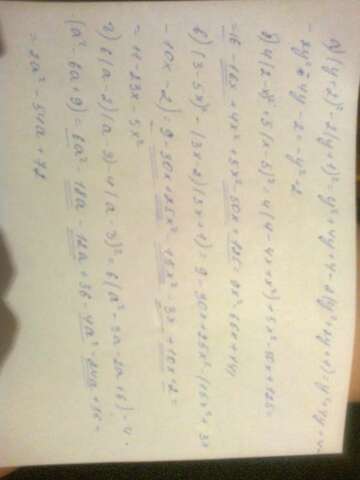 а) (y+2)² - 2(y+1)² = y²+4y+4-2(y²+2y+1) = y²+4y+4-
-2y²-4y-2 = -y²+2
б) 4(2-x)²+5(x-5)² = 4(4-4x+x²)+5x²-50x+125=
=16-16x+4x²+5x²-50x+125=9x²-66x+141
в) (3-5x)²-(3x-2)(5x+1)=9-30x+25x²-(15x²+3x
-10x-2)=9-30x+25x²-15x²-3x+10x+2=
=11-23x-5x²
г) 6(a-2)(a-3)-4(a-3)²=6(a²-3a-2a+6)-4·
·(a²-6a+9)=6a²-18a-12a+36-4a²-24a+36=
=2a²-54a+72